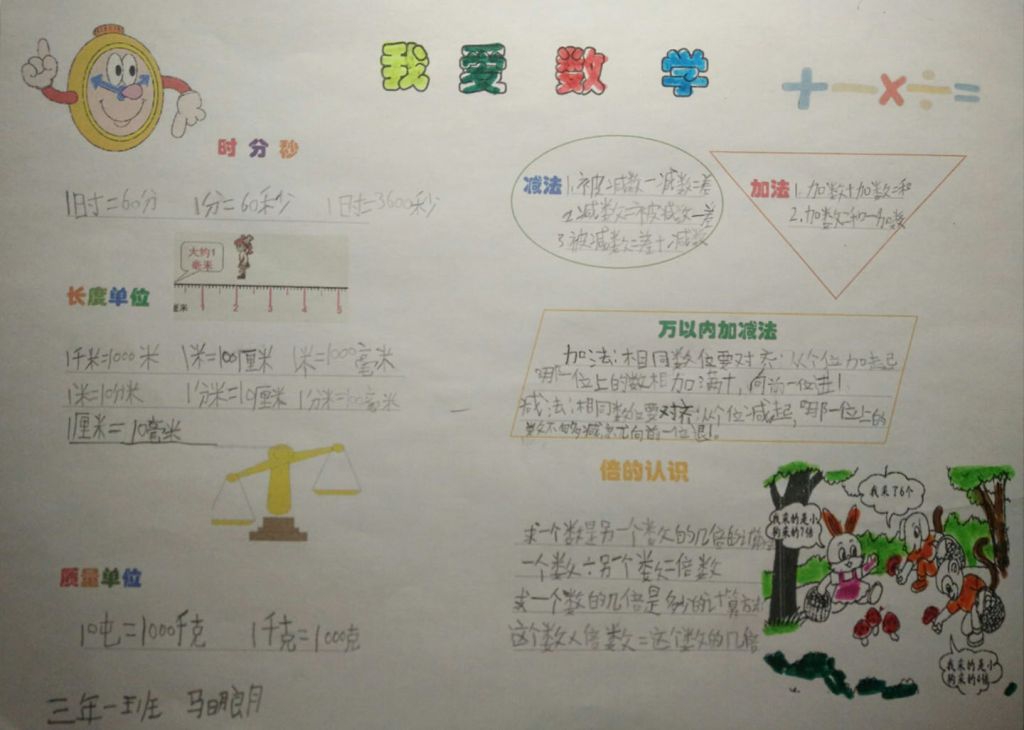 我爱数学
+ − × ÷ =
时分秒
1日寸=60分 1分=60秒 1日寸=3600秒
大约1
毫米
厘米 1 2 3 4 5
长度单位
1千米=1000米 1米=100厘米 1米=1000毫米
1米=10分米 1分米=10厘米 1分米=100毫米
1厘米=10毫米
质量单位
10吨=1000千克 1千克=1000克
三年一班 马明朗月
减法 1.被减数-减数=差
2.减数=被减数-差
3.被减数=差+减数
加法 1.加数+加数=和
2.加数=和-加数
万以内加减法
加法:相同数位要对齐:从个位加起
哪一位上的数相加满十,向前一位进1
减法:相同数位要对齐:从个位减起,哪一位上的
数不够减就向前一位退1。
倍的认识
求一个数是另一个数的几倍的计算
一个数÷另个数=倍数
求一个数的几倍是多少的计算方法
这个数×倍数=这个数的几倍
我采了6个
我采的是小
狗采的7倍
我采的是小
狗采的6倍